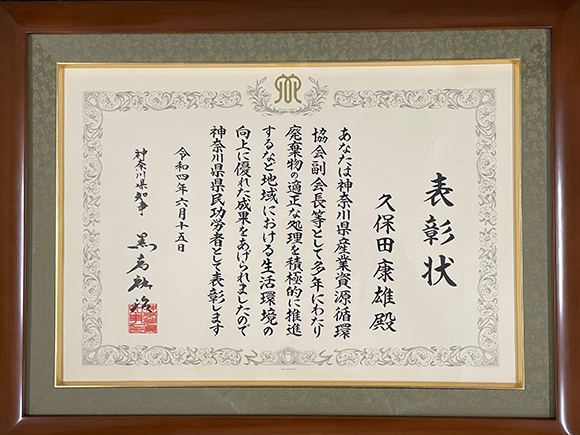 表彰状
久保田康雄殿
あなたは神奈川県産業資源循環
協会副会長等として多年にわたり
廃棄物の適正な処理を積極的に推進
するなど地域における生活環境の
向上に優れた成果をあげられましたので
神奈川県県民功労者として表彰します
令和四年六月十五日
神奈川県知事 黒岩祐治